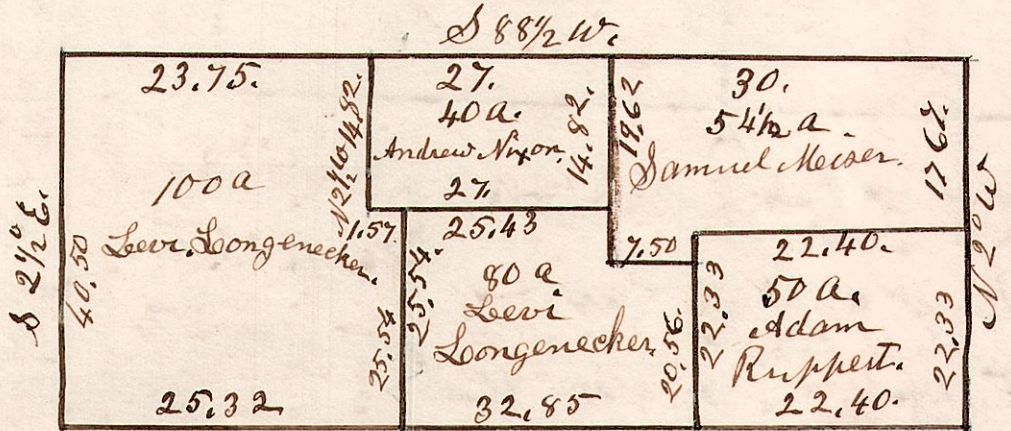 S 88½ W.
S 2½° E.
40.50
23.75.
100 a
Levi Longenecker.
25.32
14.82.
1.57.
25.54
27.
40 a.
Andrew Nixon
14.82.
27.
25.43
25.54.
80 a
Levi
Longenecker
20.56.
32.85
19.62
30.
54½ a.
Samuel Meiser.
17 67.
7.50
22.40.
50 a.
Adam
Ruppert.
22.33
22.33
22.40.
N 2° W